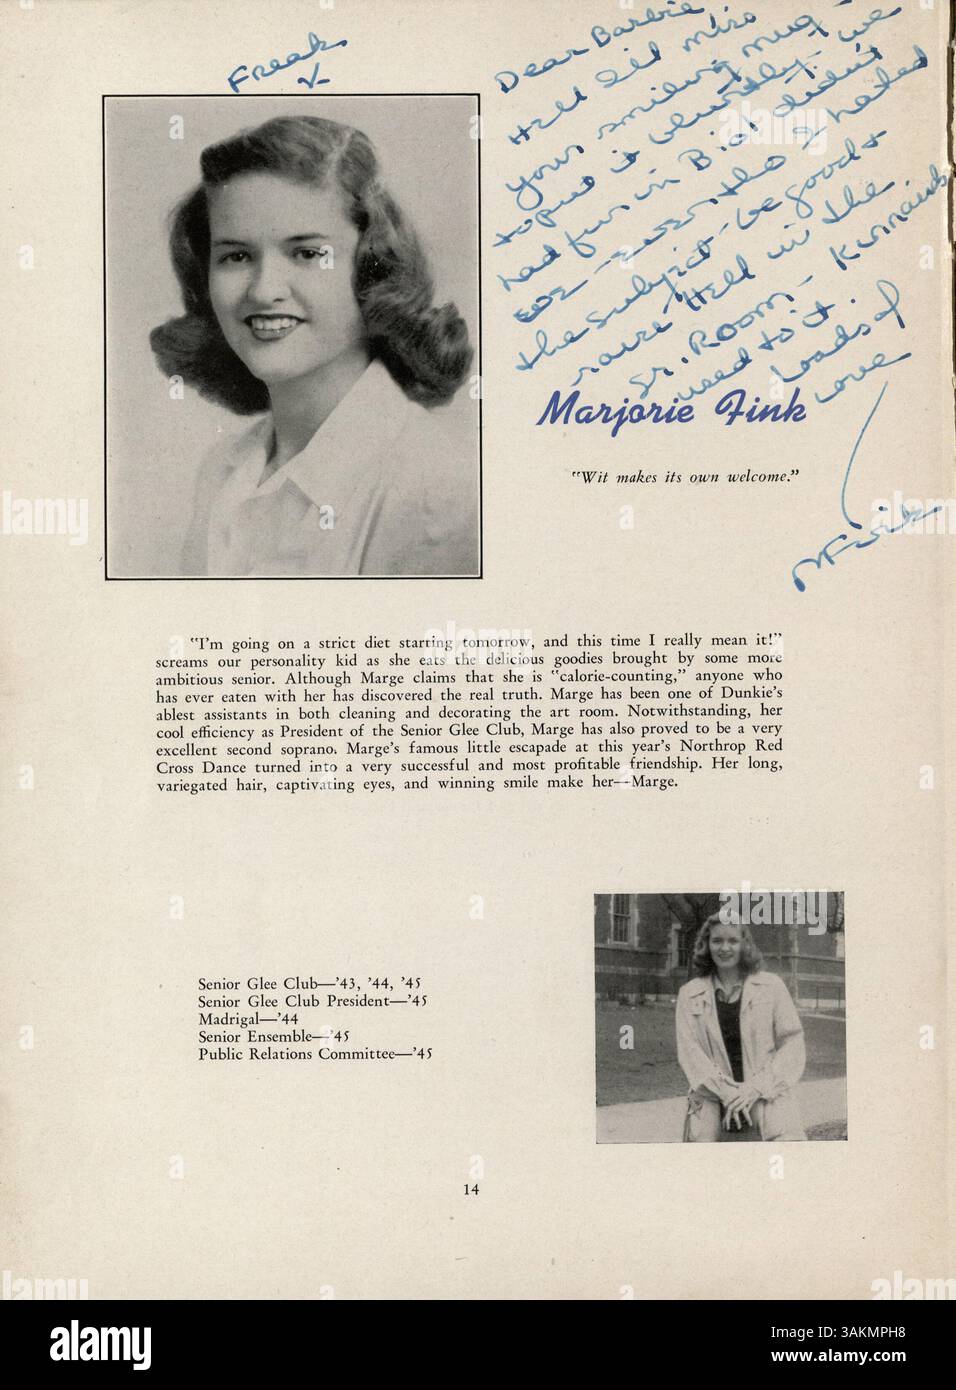 Freak
Dear Barbie
Hell I'll miss
your smiling mug -
to put it bluntly - we
had fun in Biol didn't
we - even tho I hated
the subject - be good &
raise Hell in the
Sr. Room -
used to it
Loads of
Love
MFink
Marjorie Fink
"Wit makes its own welcome."
"I'm going on a strict diet starting tomorrow, and this time I really mean it!"
screams our personality kid as she eats the delicious goodies brought by some more
ambitious senior. Although Marge claims that she is "calorie-counting," anyone who
has ever eaten with her has discovered the real truth. Marge has been one of Dunkie's
ablest assistants in both cleaning and decorating the art room. Notwithstanding, her
cool efficiency as President of the Senior Glee Club, Marge has also proved to be a very
excellent second soprano. Marge's famous little escapade at this year's Northrop Red
Cross Dance turned into a very successful and most profitable friendship. Her long,
variegated hair, captivating eyes, and winning smile make her—Marge.
Senior Glee Club—'43, '44, '45
Senior Glee Club President—'45
Madrigal—'44
Senior Ensemble—'45
Public Relations Committee—'45
14
alamy
Image ID: 3AKMPH8
www.alamy.com